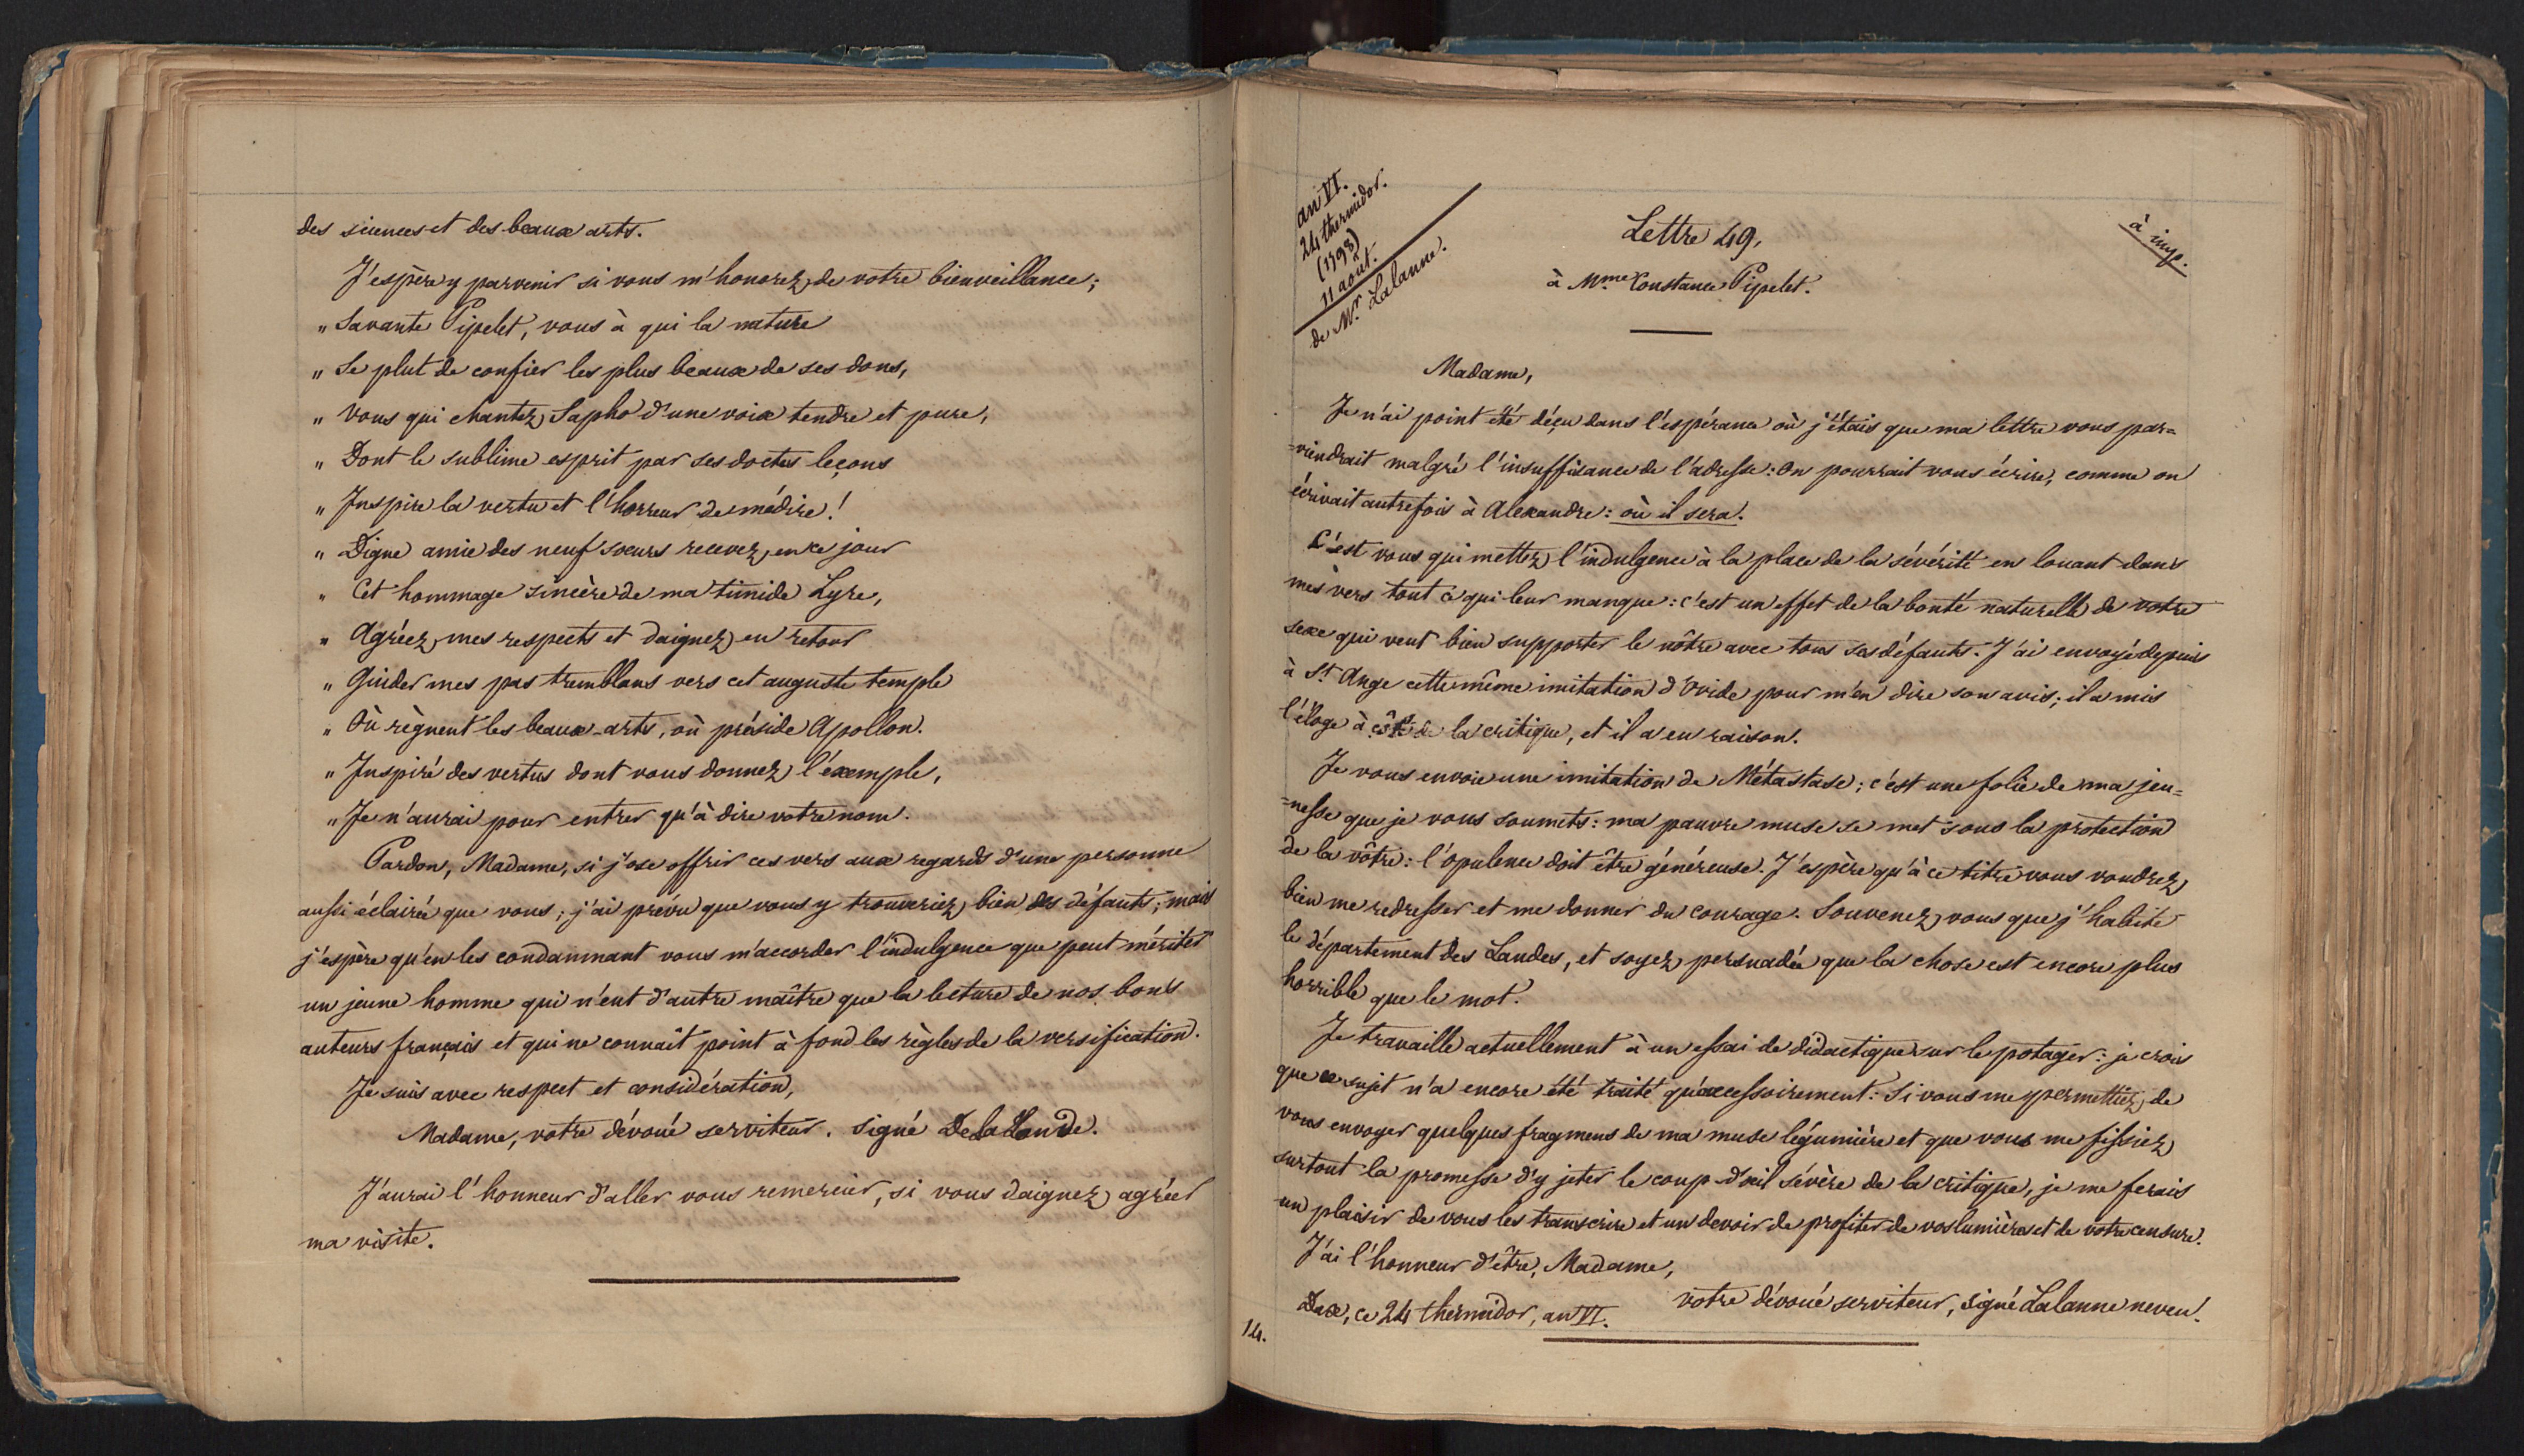 des sciences et des beaux arts.
J'espère y parvenir si vous m'honorez de votre bienveillance;
" Savante Pipelet, vous à qui la nature
" Se plut de confier les plus beaux de ses dons,
" Vous qui chantez Sapho d'une voix tendre et pure,
" Dont le sublime esprit par ses doctes leçons
" Inspire la vertu et l'horreur de médire!
" Digne amie des neuf soeurs recevez en ce jour
" Cet hommage sincère de ma timide Lyre,
" Agréez mes respects et daignez en retour
" Guider mes pas tremblans vers cet auguste temple
" Où règnent les beaux-arts, où préside Apollon.
" Inspiré des vertus dont vous donnez l'exemple,
" Je n'aurai pour entrer qu'à dire votre nom.
Pardon, Madame, si j'ose offrir ces vers aux regards d'une personne
aussi éclairée que vous; j'ai prévu que vous y trouveriez bien des défauts; mais
j'espère qu'en les condamnant vous m'accorder l'indulgence que peut mériter
un jeune homme qui n'eut d'autre maître que la lecture de nos bons
auteurs français et qui ne connaît point à fond les règles de la versification.
Je suis avec respect et considération,
Madame, votre dévoué serviteur. signé De la Lande.
J'aurai l'honneur d'aller vous remercier, si vous daignez agréer
ma visite.
an VI.
24 thermidor.
(1798)
11 août.
de Mr. Lalanne.
Lettre 49.
à imp.
à Mme Constance Pipelet.
Madame,
Je n'ai point été déçu dans l'espérance où j'étais que ma lettre vous par=
=viendrait malgré l'insuffisance de l'adresse: On pourrait vous écrire, comme on
écrivait autrefois à Alexandre: où il sera.
C'est vous qui mettez l'indulgence à la place de la sévérité en louant dans
mes vers tout ce qui leur manque: c'est un effet de la bonté naturelle de votre
sexe qui veut bien supporter le nôtre avec tous ses défauts. J'ai envoyé depuis
à St. Ange cette même imitation d'Ovide pour m'en dire son avis; il a mis
l'éloge à côté de la critique, et il a eu raison.
Je vous envoie une imitation de Métastase; c'est une folie de ma jeu=
=nesse que je vous soumets: ma pauvre muse se met sous la protection
de la vôtre: l'opulence doit être généreuse. J'espère qu'à ce titre vous voudrez
bien me redresser et me donner du courage. Souvenez vous que j'habite
le département des Landes, et soyez persuadée que la chose est encore plus
horrible que le mot.
Je travaille actuellement à un essai de didactique sur le potager: je crois
que ce sujet n'a encore été traité qu'accessoirement: Si vous me permettiez de
vous envoyer quelques fragmens de ma muse légumière et que vous me fissiez
surtout la promesse d'y jeter le coup-d'oeil sévère de la critique, je me ferais
un plaisir de vous les transcrire et un devoir de profiter de vos lumières et de votre censure.
J'ai l'honneur d'être, Madame,
votre dévoué serviteur, signé Lalanne neveu.
Dax, ce 24 thermidor, an VI.
14.